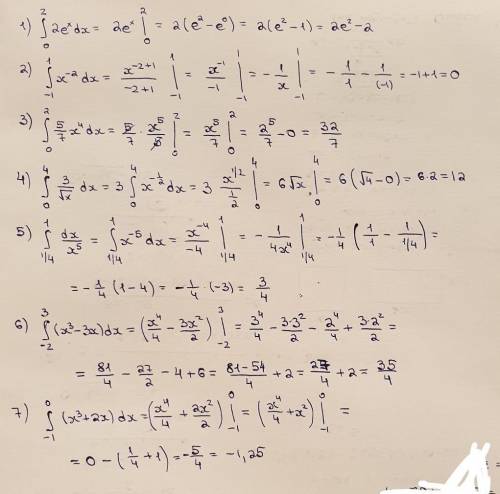 1) ∫₀² 2eˣdx = 2eˣ |₀² = 2(e² - e⁰) = 2(e² - 1) = 2e² - 2
2) ∫₋₁¹ x⁻² dx = x⁻²⁺¹/(-2+1) |₋₁¹ = x⁻¹/-1 |₋₁¹ = - 1/x |₋₁¹ = - 1/1 - 1/(-1) = -1+1 = 0
3) ∫₀² 5/7 x⁴ dx = 5/7 · x⁵/5 |₀² = x⁵/7 |₀² = 2⁵/7 - 0 = 32/7
4) ∫₀⁴ 3/√x dx = 3 ∫₀⁴ x^(-1/2) dx = 3 x^(1/2)/(1/2) |₀⁴ = 6√x |₀⁴ = 6(√4 - 0) = 6·2 = 12
5) ∫_(1/4)^1 dx/x⁵ = ∫_(1/4)^1 x⁻⁵ dx = x⁻⁴/-4 |_(1/4)^1 = - 1/(4x⁴) |_(1/4)^1 = - 1/4 (1/1 - 1/(1/4)) =
= - 1/4 (1-4) = - 1/4 · (-3) = 3/4
6) ∫₋₂³ (x³ - 3x)dx = (x⁴/4 - 3x²/2) |₋₂³ = 3⁴/4 - 3·3²/2 - 2⁴/4 + 3·2²/2 =
= 81/4 - 27/2 - 4 + 6 = (81-54)/4 + 2 = 27/4 + 2 = 35/4
7) ∫₋₁⁰ (x³ + 2x) dx = (x⁴/4 + 2x²/2) |₋₁⁰ = (x⁴/4 + x²) |₋₁⁰ =
= 0 - (1/4 + 1) = - 5/4 = -1,25